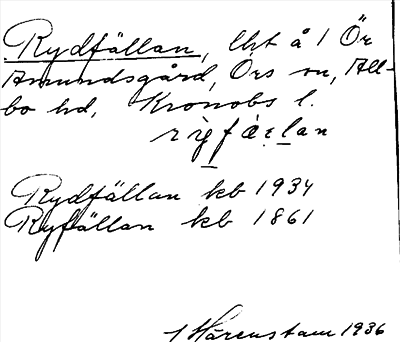 Rydfällan, lht å 1 Ör
Amundsgård, Örs sn, All-
bo hd, Kronobs l.
Rydfällan kb 1934
Ryfällan kb 1861
1936